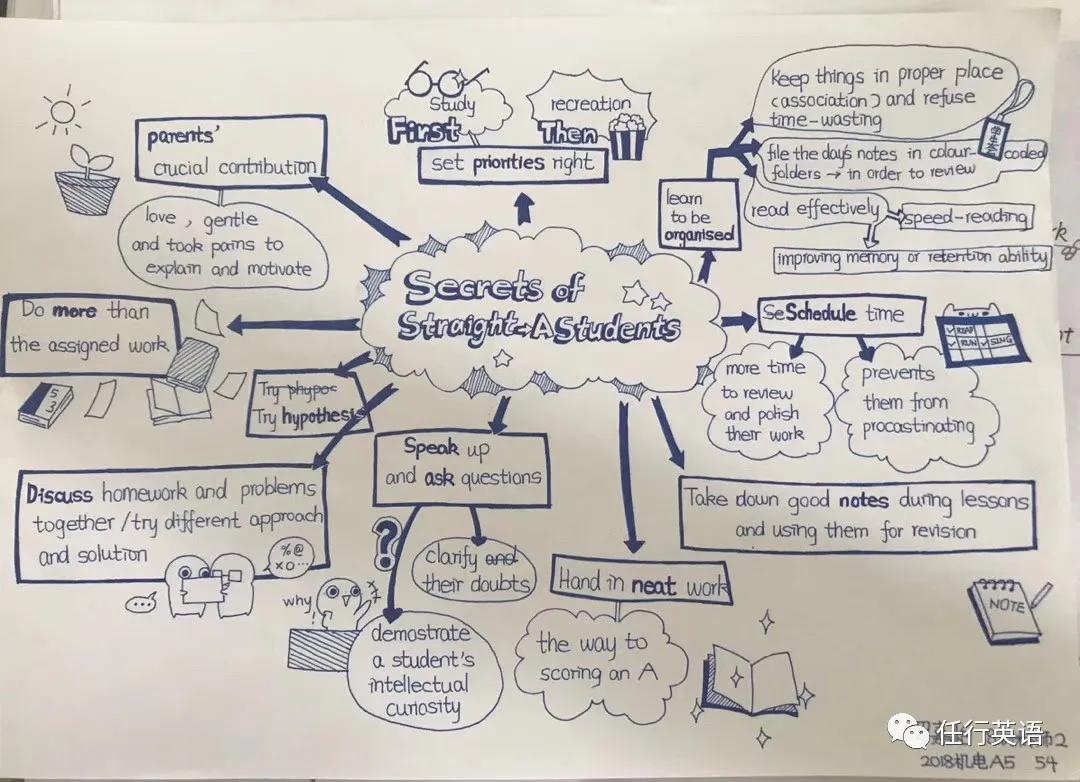 Secrets of
Straight-A Students
parents'
crucial contribution
love, gentle
and took pains to
explain and motivate
Study
First
recreation
Then
set priorities right
learn
to be
organised
Keep things in proper place
(association) and refuse
time-wasting
file the day's notes in colour-coded
folders → in order to review
read effectively
speed-reading
improving memory or retention ability
Se Schedule time
READ
RUN
SING
more time
to review
and polish
their work
prevents
them from
procastinating
Take down good notes during lessons
and using them for revision
NOTE
Hand in neat work
the way to
scoring an A
Speak up
and ask questions
clarify and
their doubts
demostrate
a student's
intellectual
curiosity
?
why
!
Try phypoc
Try hypothesis
Discuss homework and problems
together /try different approach
and solution
%@
×○…
...
Do more than
the assigned work
5
3
任行英语
2018机电A5 54